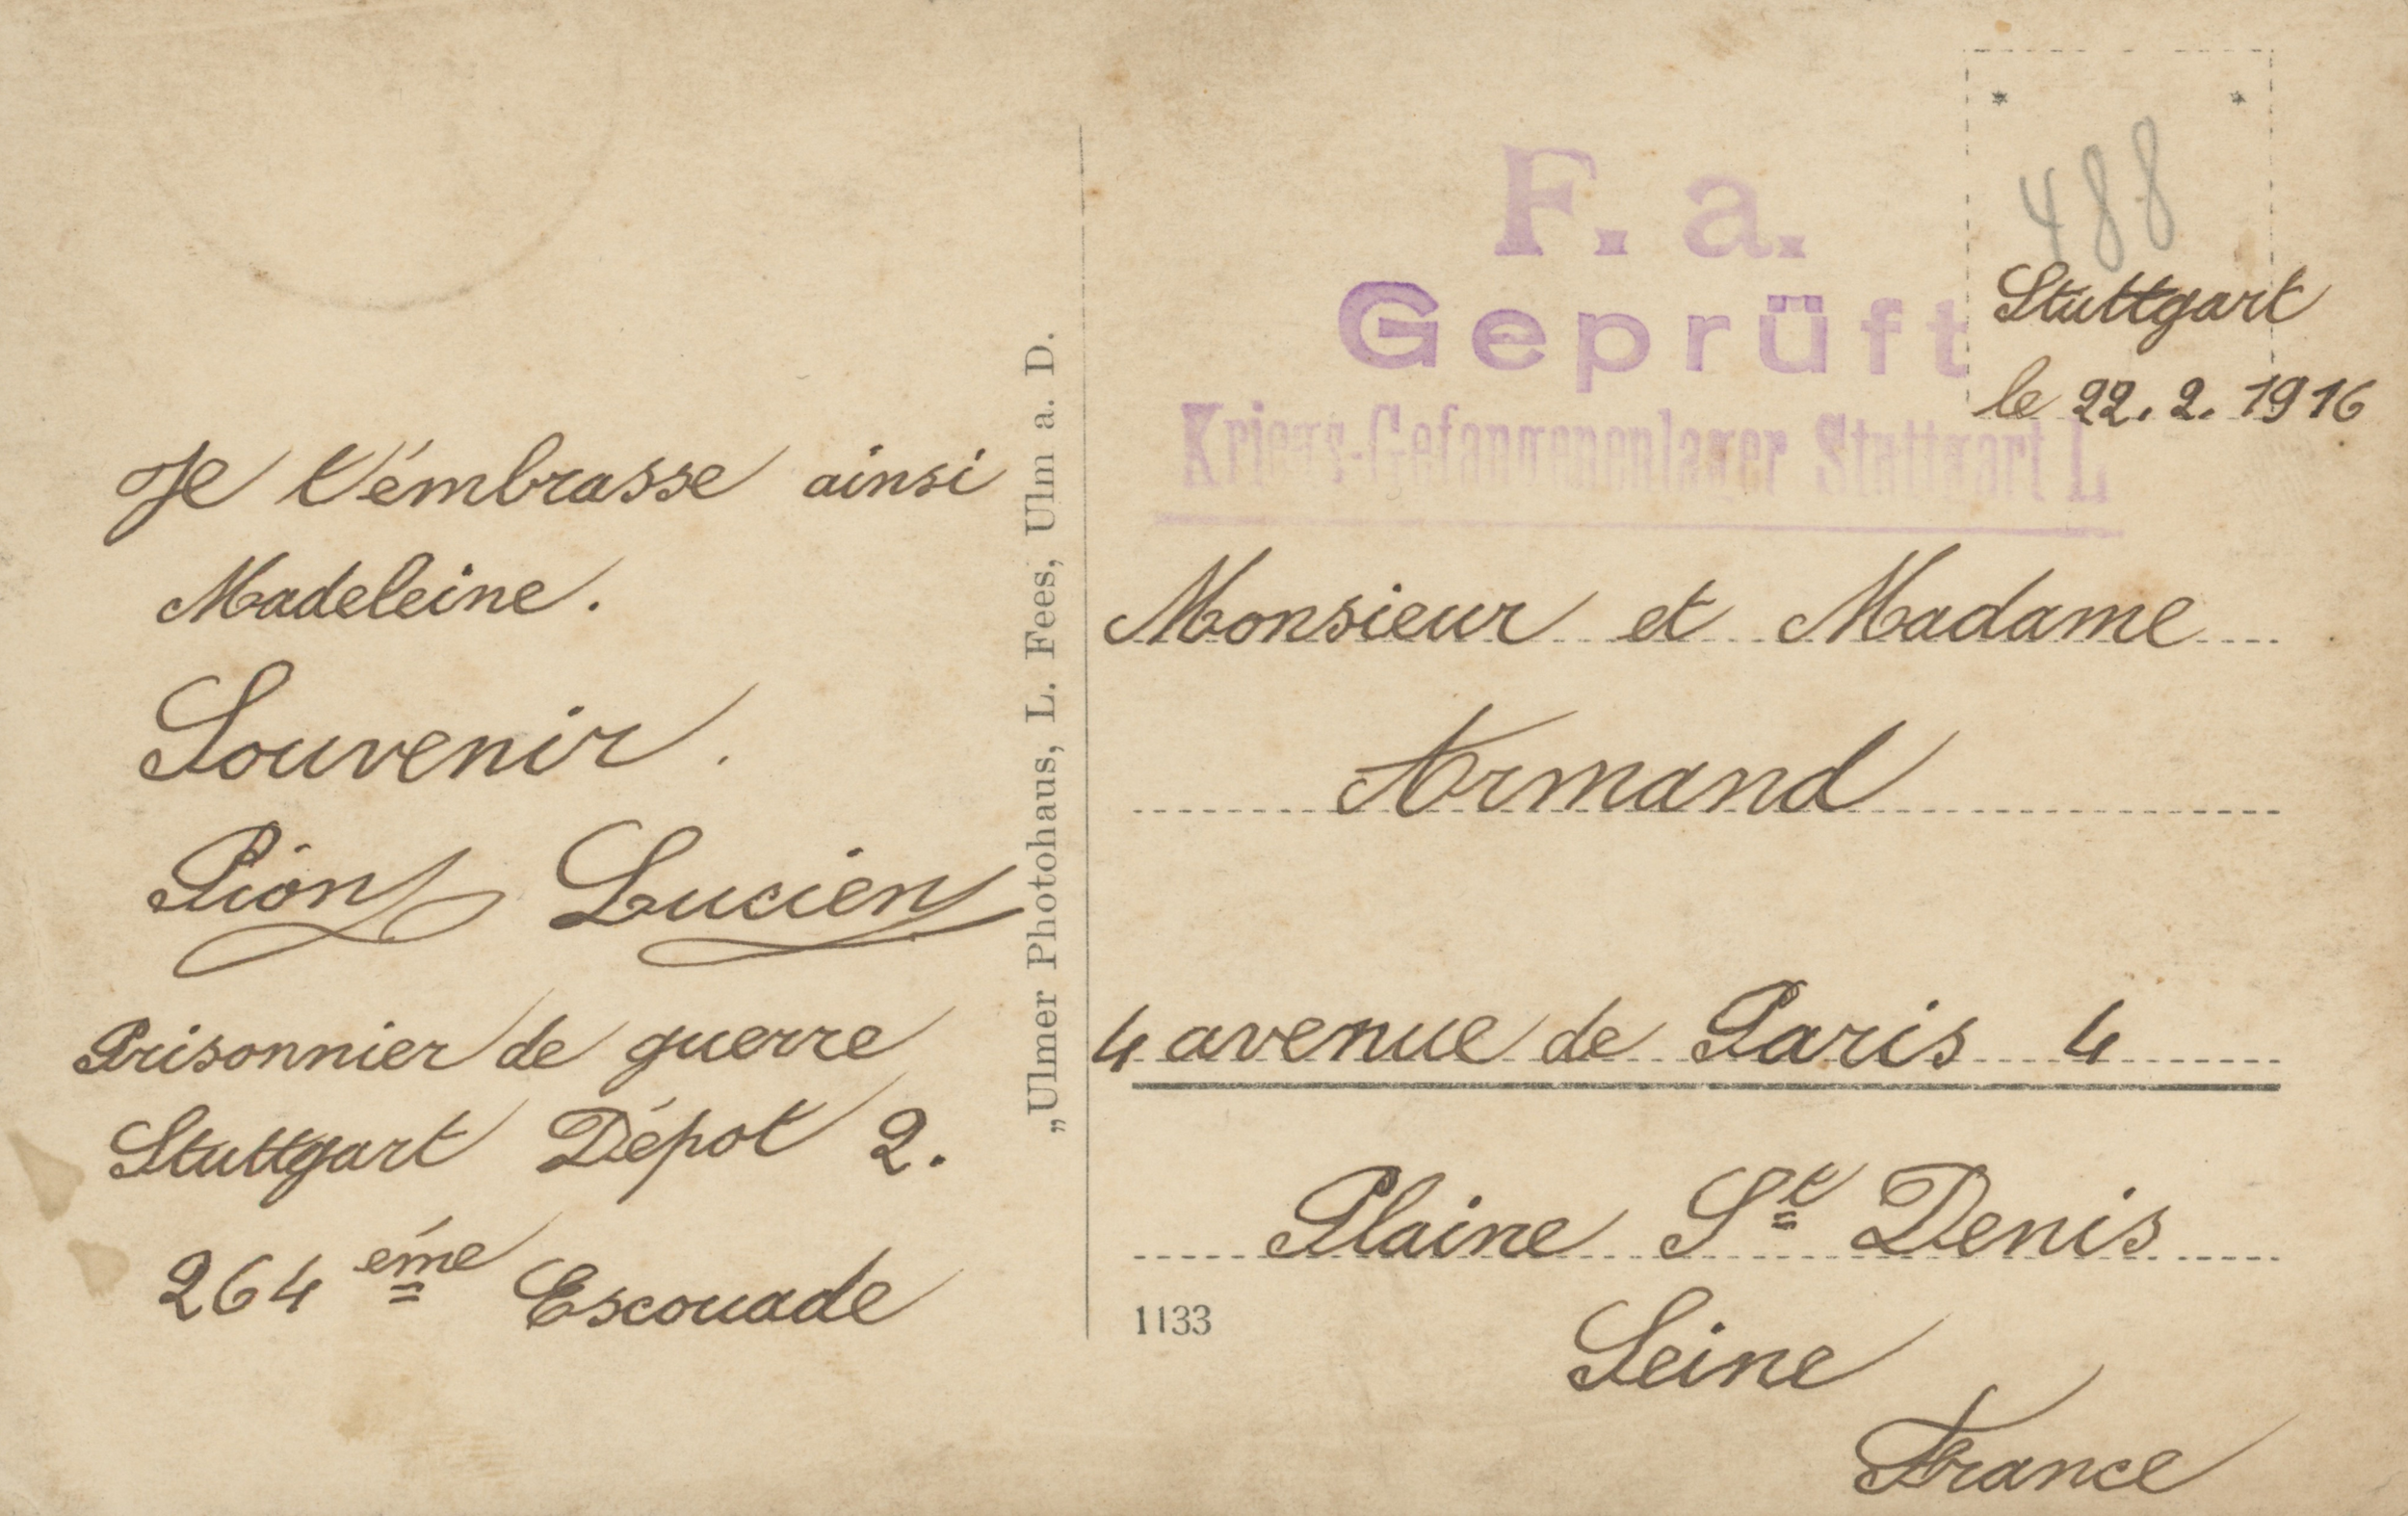 Je t'émbrasse ainsi
Madeleine.
Souvenir.
Pion Lucien
Prisonnier de guerre
Stuttgart Dépot 2.
264 éme Escouade
„Ulmer Photohaus, L. Fees, Ulm a. D.
F. a.
Geprüft
Kriegs-Gefangenenlager Stuttgart I.
488
Stuttgart
le 22. 2. 1916
Monsieur et Madame
Armand
4 avenue de Paris 4
Plaine St Denis
1133
Seine
France